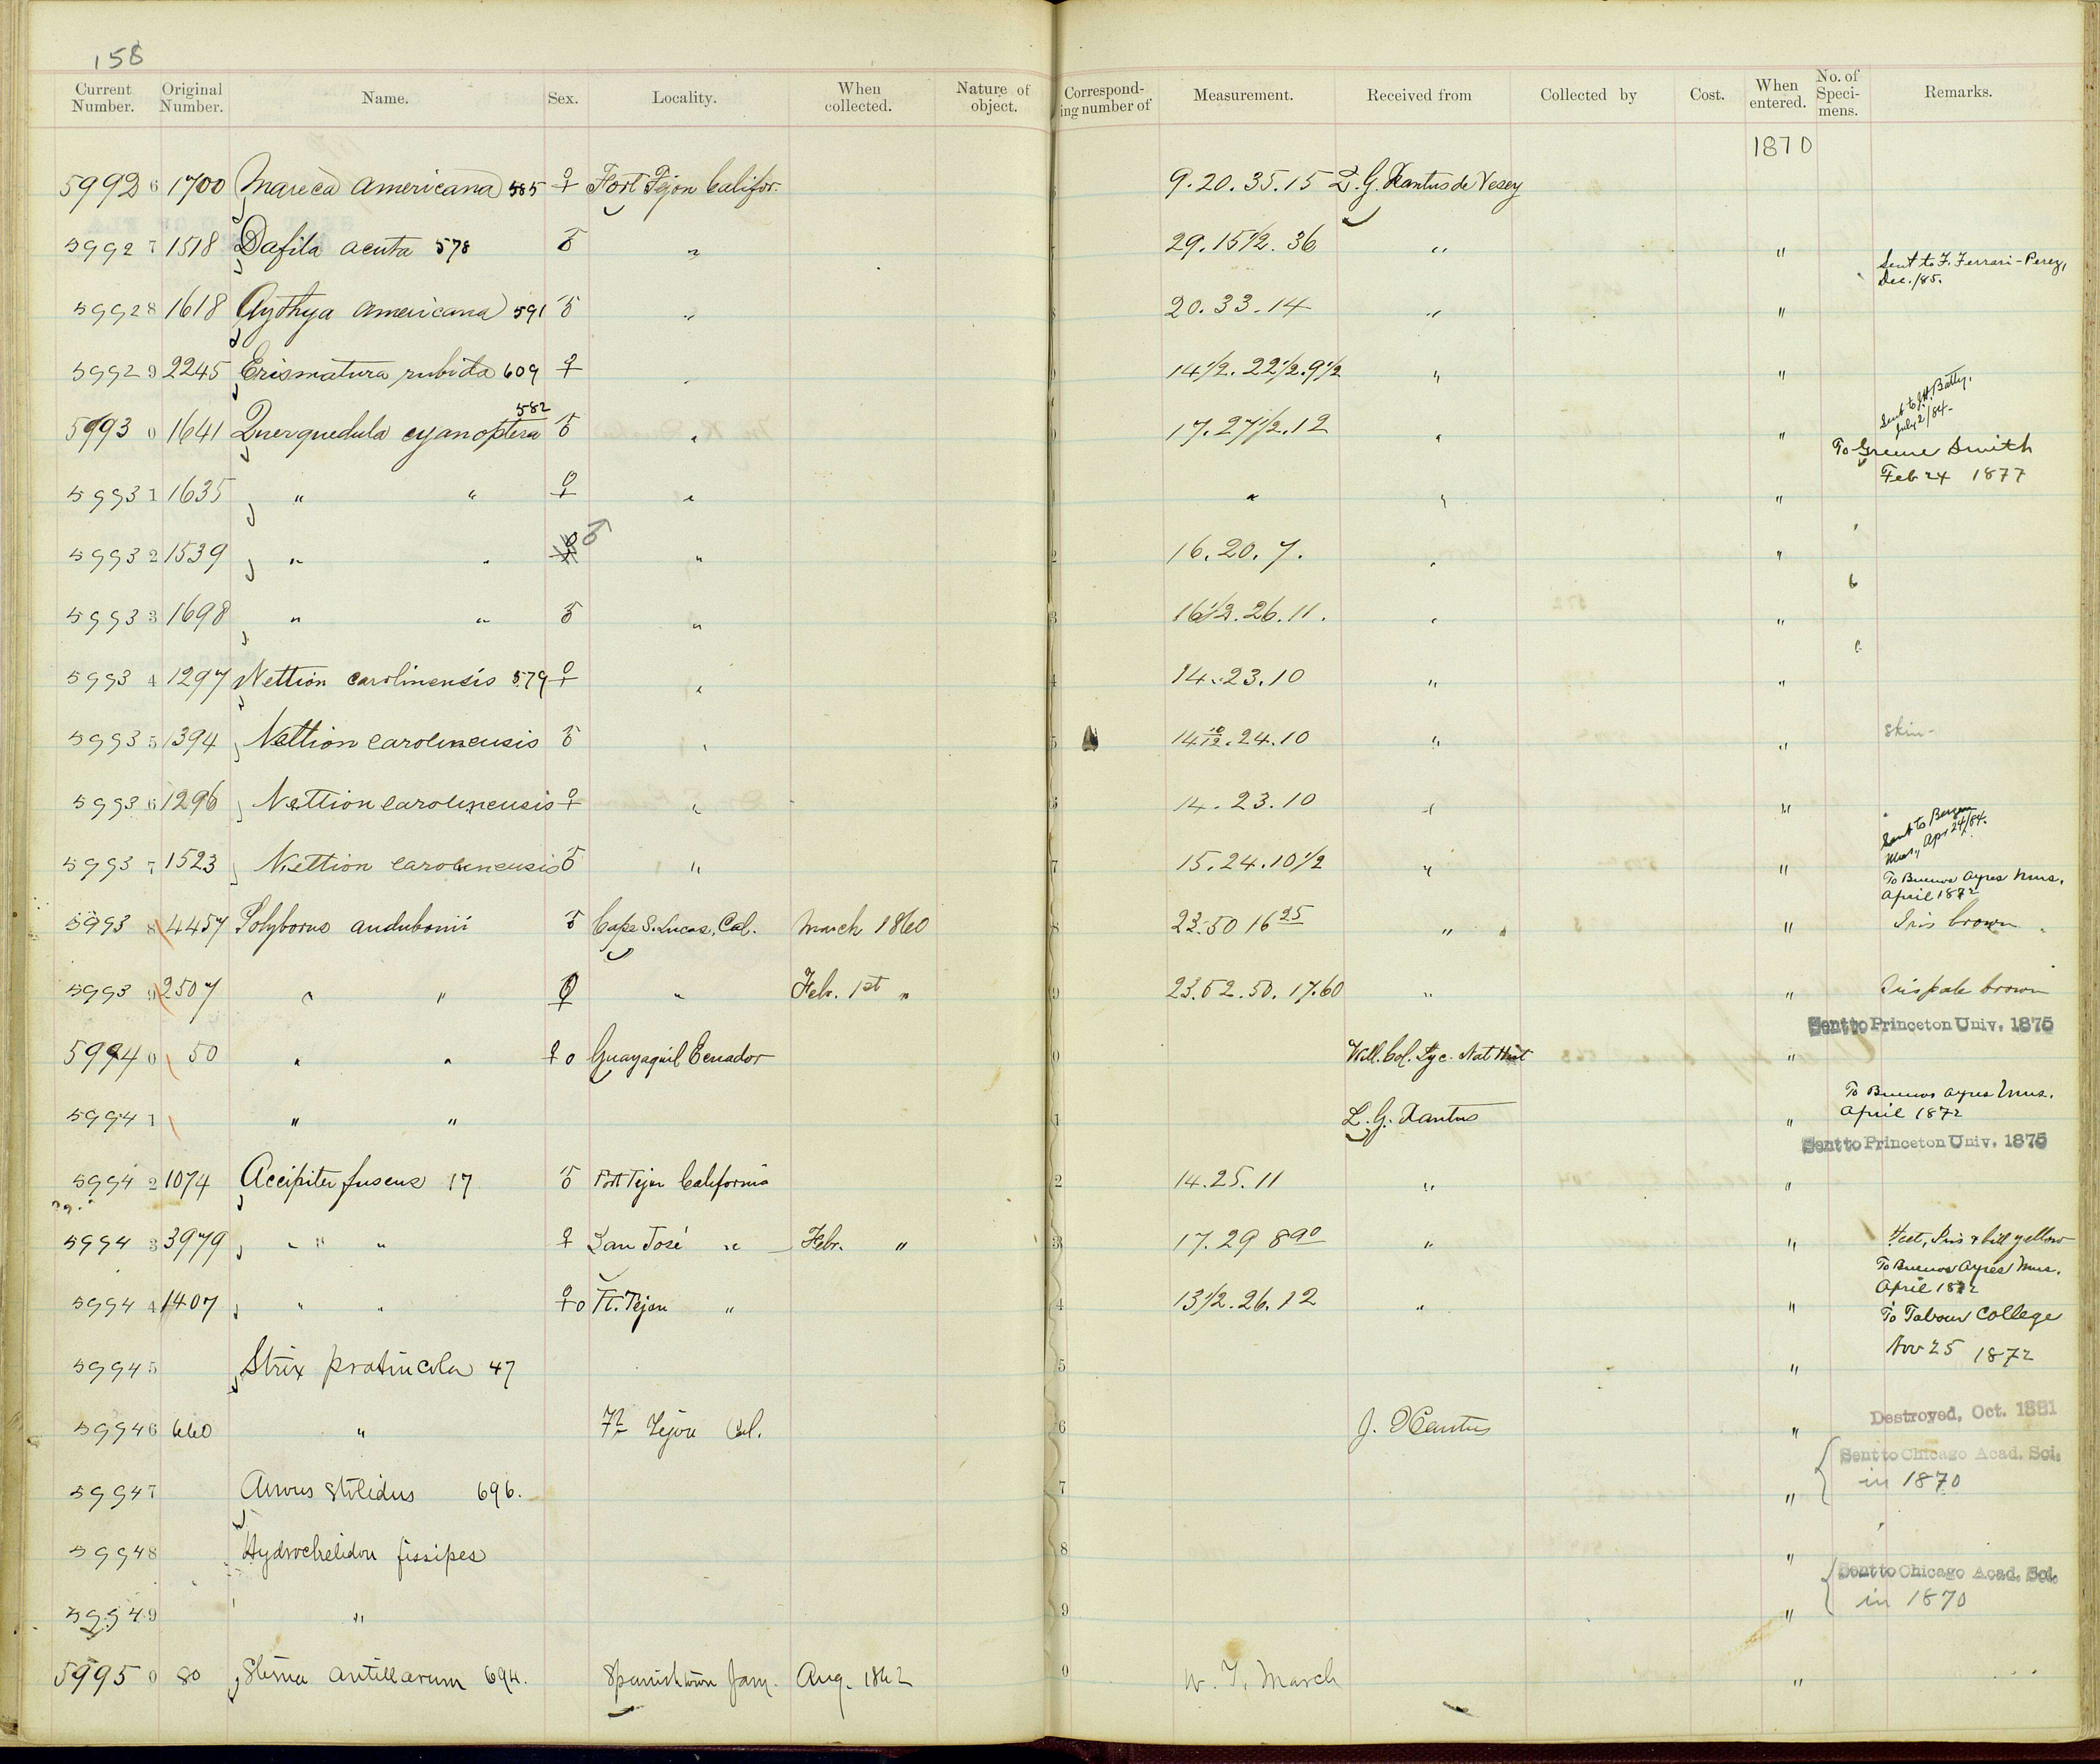 158
Current Number. Original Number. Name. Sex. Locality. When collected. Nature of object. Corresponding number of Measurement. Received from Collected by Cost. When entered. No. of Specimens. Remarks.
1870
59926 1700 Mareca americana 585 ♀ Fort Tejon Califor. 9.20.35.15 L. G. Xantus de Vesey
59927 1518 Dafila acuta 578 ♂ " 29.15½.36 " " Sent to F. Ferrari-Perez, Dec./85.
59928 1618 Aythya americana 591 ♂ " 20.33.14 " "
59929 2245 Erismatura rubida 609 ♀ " 14½.22½.9½ " "
59930 1641 Querquedula cyanoptera 582 ♂ " 17.27½.12 " " Sent to J.H. Batty, July 2/84-
To Greene Smith
Feb 24 1877
59931 1635 " " ♀ " " " "
59932 1539 " " ♀ ♂ " 16.20.7. " "
59933 1698 " " ♂ " 16½.26.11. " "
59934 1297 Nettion carolinensis 579 ♀ " 14.23.10 " "
59935 1394 Nettion carolinensis ♂ " 14 10/12.24.10 " " Skin-
59936 1296 Nettion carolinensis ♀ " 14.23.10 " "
59937 1523 Nettion carolinensis ♂ " 15.24.10½ " " Sent to Bergen Mus., Apr 24/84.
To Buenos Ayres Mus. April 1872
59938 4457 Polyborus audubonii ♂ Cape S. Lucas, Cal. March 1860 23.50 16 25 " " Iris brown
59939 2507 " " ♀ " Feb. 1st " 23.52.50.17.60 " " Iris pale brown
Sent to Princeton Univ. 1875
59940 50 " " ♀ o Guayaquil Ecuador Will. Col. Lyc. Nat Hist "
To Buenos Ayres Mus. April 1872
59941 " " L. G. Xantus "
Sent to Princeton Univ. 1875
59942 1074 Accipiter fuscus 17 ♂ Fort Tejon California 14.25.11 " "
59943 3979 " " " ♀ San José " Feb. " 17.29 8 90 " " Feet, Iris & bill yellow
To Buenos Ayres Mus. April 1872
59944 1407 " " ♀ o Ft. Tejon " 13½.26.12 " " To Tabour College
Nov 25 1872
59945 Strix pratincola 47 "
59946 660 " Ft Tejon Cal. J. Xantus " Destroyed, Oct. 1881
59947 Anous stolidus 696. " Sent to Chicago Acad. Sci. in 1870
59948 Hydrochelidon fissipes "
59949 " " Sent to Chicago Acad. Sci. in 1870
59950 80 Sterna antillarum 694. Spanishtown Jam. Aug. 1862 W. T. March "